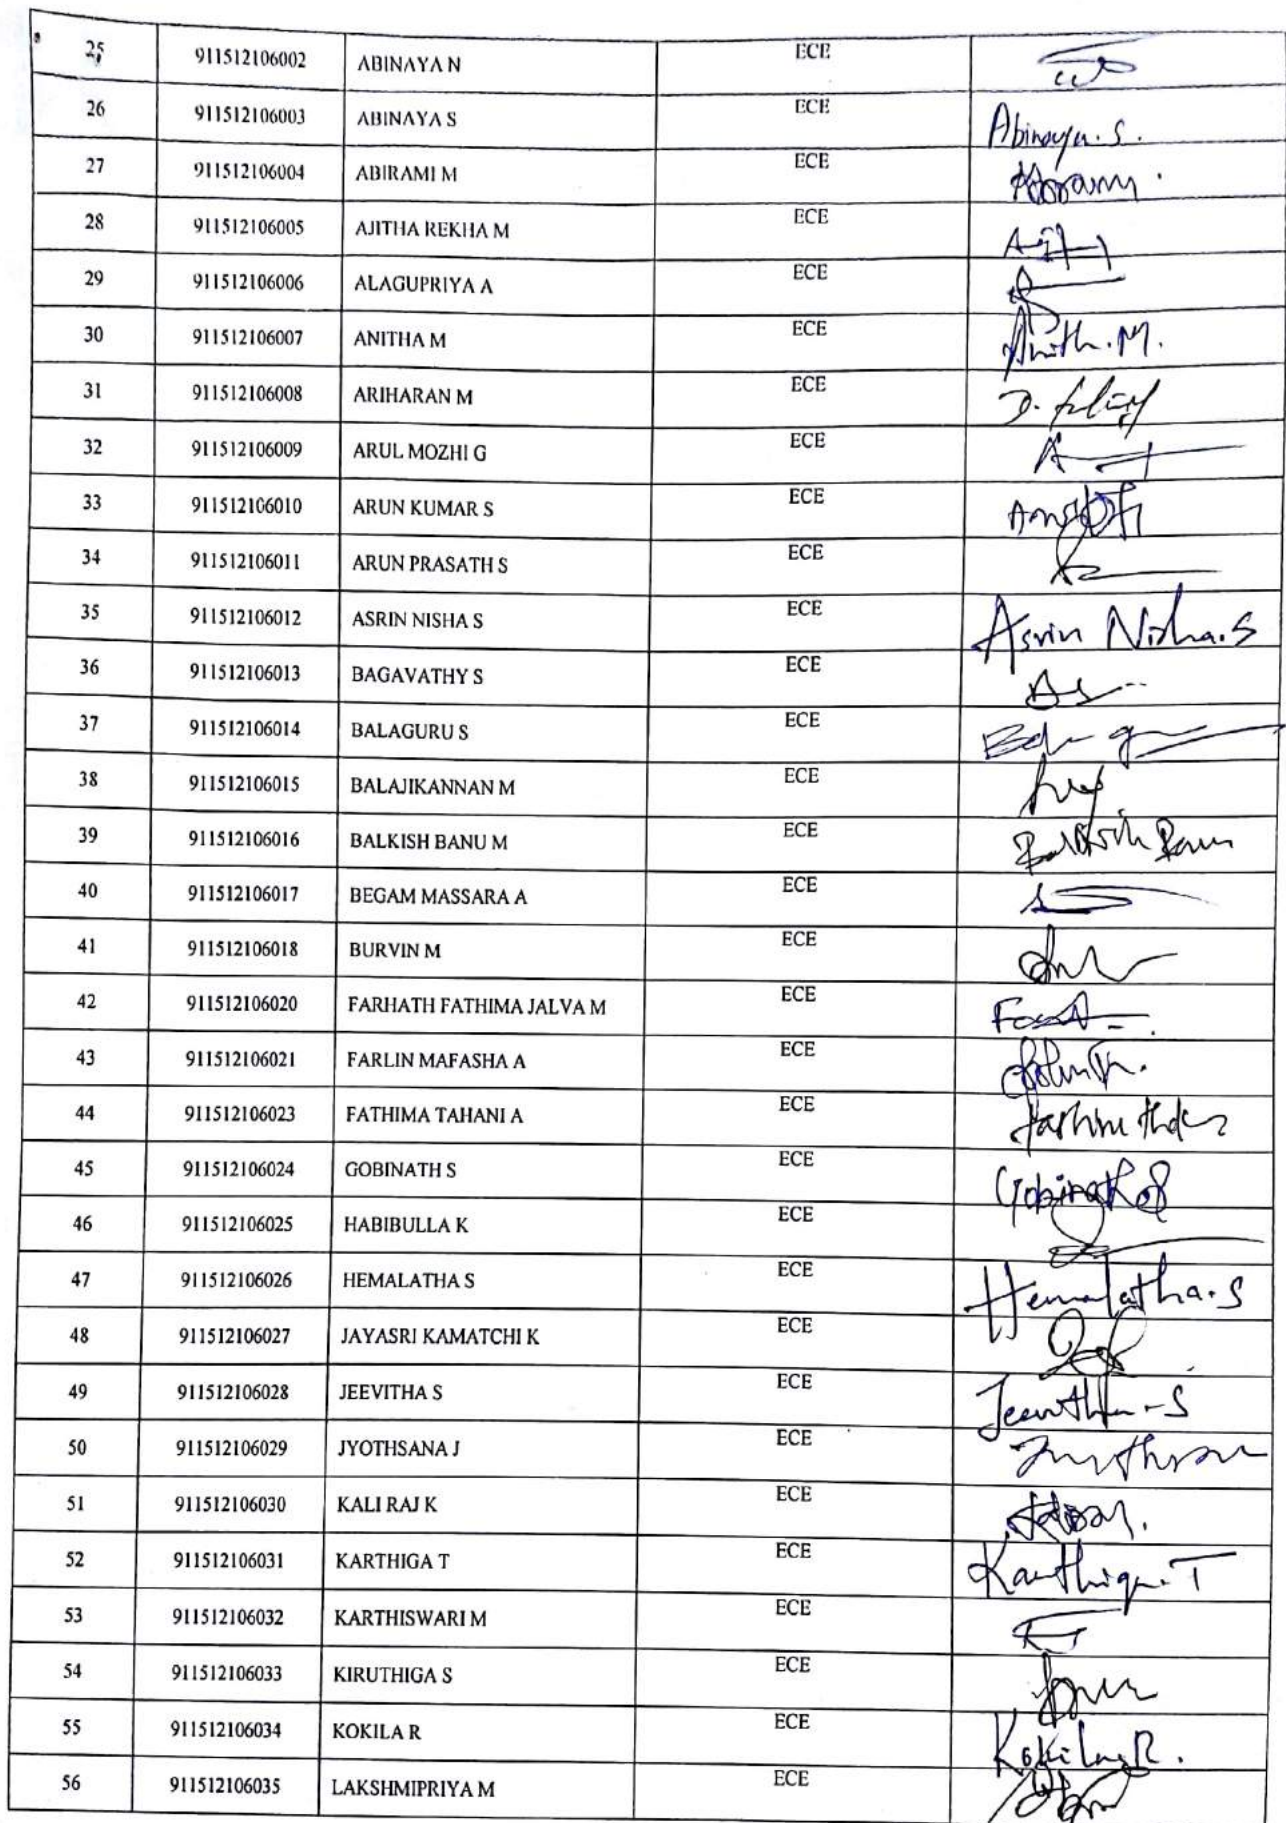 25 911512106002 ABINAYA N ECE
26 911512106003 ABINAYA S ECE Abinaya.S.
27 911512106004 ABIRAMI M ECE
28 911512106005 AJITHA REKHA M ECE
29 911512106006 ALAGUPRIYA A ECE
30 911512106007 ANITHA M ECE Anith.M.
31 911512106008 ARIHARAN M ECE
32 911512106009 ARUL MOZHI G ECE
33 911512106010 ARUN KUMAR S ECE
34 911512106011 ARUN PRASATH S ECE
35 911512106012 ASRIN NISHA S ECE Asrin Nisha.S
36 911512106013 BAGAVATHY S ECE
37 911512106014 BALAGURU S ECE
38 911512106015 BALAJIKANNAN M ECE
39 911512106016 BALKISH BANU M ECE
40 911512106017 BEGAM MASSARA A ECE
41 911512106018 BURVIN M ECE
42 911512106020 FARHATH FATHIMA JALVA M ECE
43 911512106021 FARLIN MAFASHA A ECE
44 911512106023 FATHIMA TAHANI A ECE
45 911512106024 GOBINATH S ECE
46 911512106025 HABIBULLA K ECE
47 911512106026 HEMALATHA S ECE Hemalatha.S
48 911512106027 JAYASRI KAMATCHI K ECE
49 911512106028 JEEVITHA S ECE
50 911512106029 JYOTHSANA J ECE
51 911512106030 KALI RAJ K ECE
52 911512106031 KARTHIGA T ECE Karthiga.T
53 911512106032 KARTHISWARI M ECE
54 911512106033 KIRUTHIGA S ECE
55 911512106034 KOKILA R ECE Kokila.R.
56 911512106035 LAKSHMIPRIYA M ECE